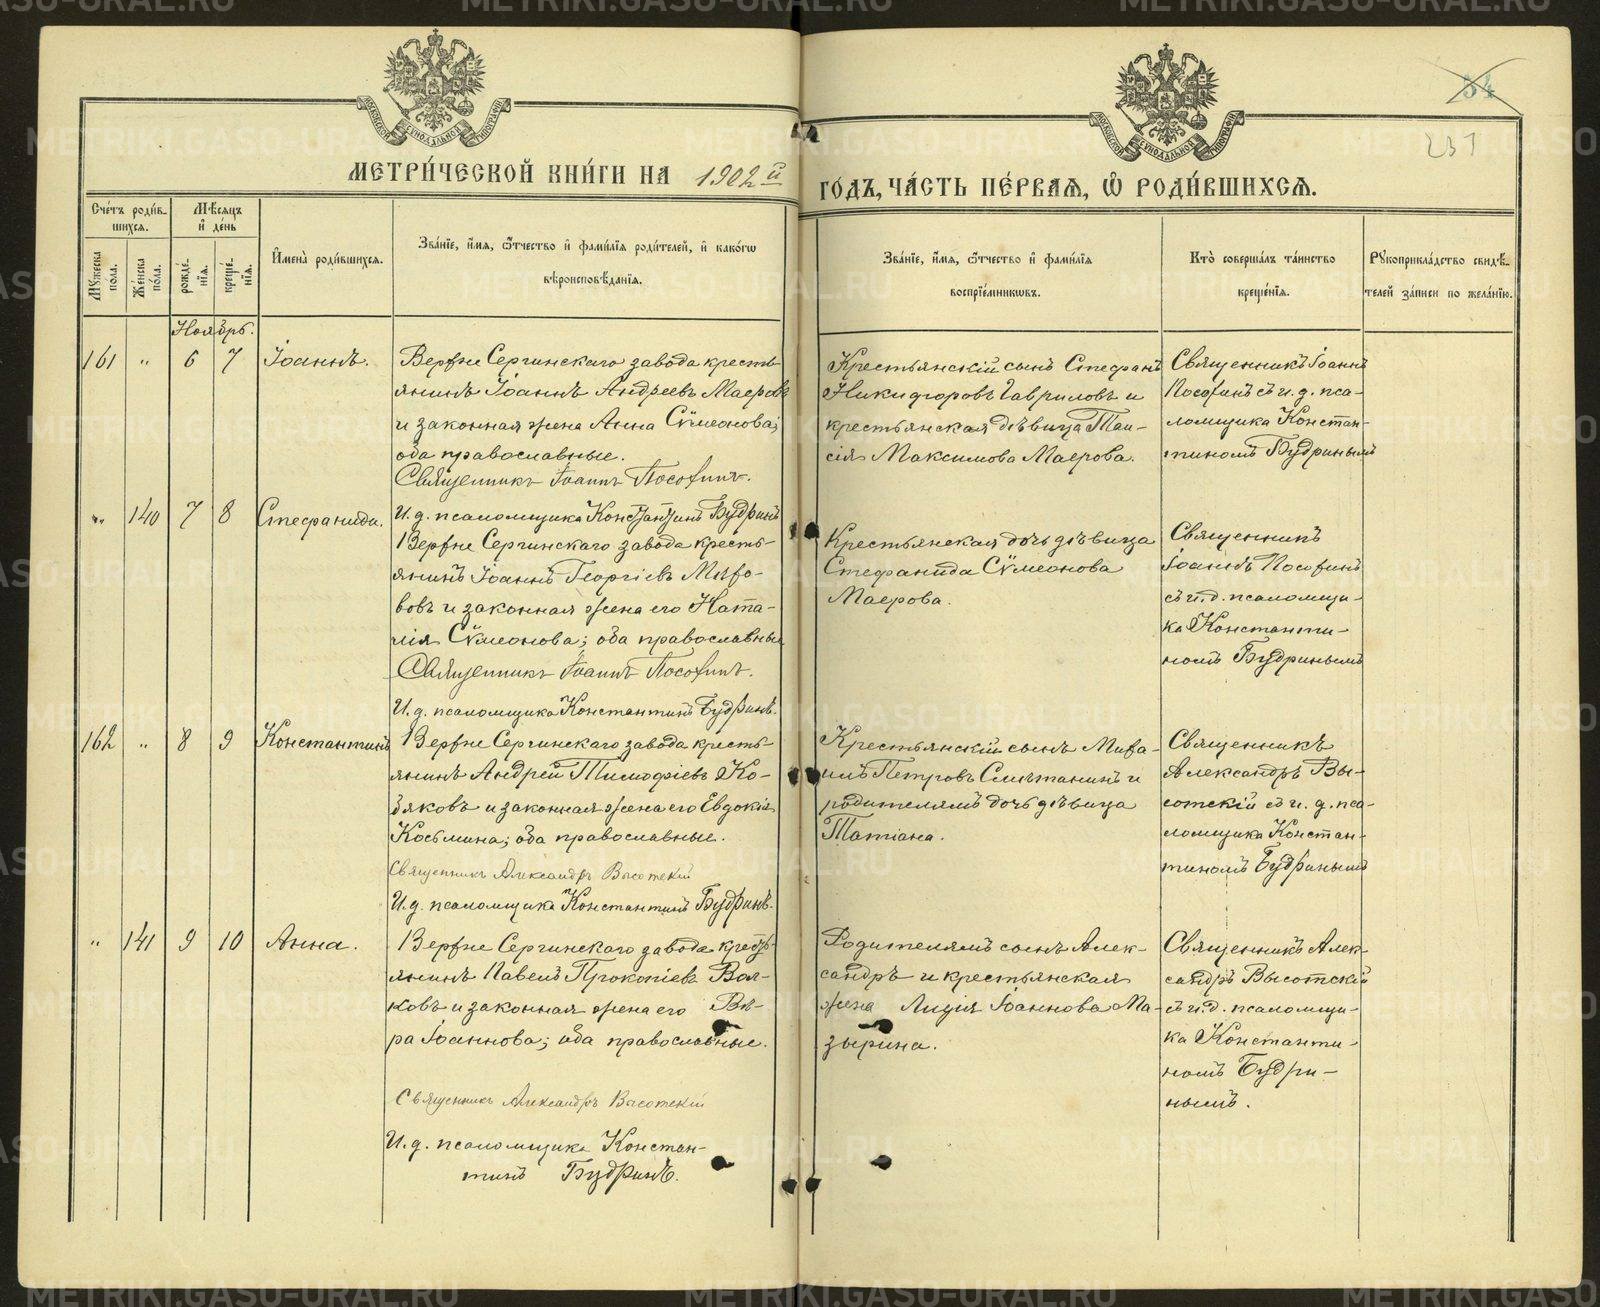 МЕТРИ́ЧЕСКОЙ КНИ́ГИ НА 1902й ГО́ДЪ, ЧА́СТЬ ПЕ́РВАЯ, Ѽ РОДИ́ВШИХСЯ.
54
231
Сче́тъ роди́в-
шихся.
Мѣ́сяцъ
и҆ де́нь
Мꙋжеска по́ла.
Же́нска по́ла.
рожде́-
нїѧ.
креще́-
нїѧ.
И҆мена̀ роди́вшихся.
Зва́нїе, и҆́мѧ, ѻ҆́тчество и҆ фами́лїѧ роди́телей, и҆ како́гѡ
вѣроисповѣ́данїѧ.
Зва́нїе, и҆́мѧ, ѻ҆́тчество и҆ фами́лїѧ
воспрїе́мникѡвъ.
Кто̀ соверша́лъ та́инство
креще́нїѧ.
Рꙋкоприкла́дство свидѣ́-
телей за́писи по жела́нїю.
Ноябрь.
161 „ 6 7 Іоаннъ.
Верхне Сергинскаго завода кресть-
янинъ Іоаннъ Андреевъ Маеровъ
и законная жена Анна Сѵмеонова;
оба православные.
Священникъ Іоаннъ Пососинъ.
И. д. псаломщика Константинъ Будринъ
Крестьянскій сынъ Стефанъ
Никифоровъ Гавриловъ и
крестьянская дѣвица Таи-
сія Максимова Маерова.
Священникъ Іоаннъ
Пососинъ съ и. д. пса-
ломщика Констан-
тиномъ Будринымъ
„ 140 7 8 Стефанида.
Верхне Сергинскаго завода кресть-
янинъ Іоаннъ Георгіевъ
вовъ и законная жена его Ната-
лія Сѵмеонова; оба православные
Священникъ Іоаннъ Пососинъ.
И. д. псаломщика Константинъ Будринъ.
Крестьянская дочь дѣвица
Стефанида Сѵмеонова
Маерова.
Священникъ
Іоаннъ Пососинъ
съ и. д. псаломщи-
ка Константи-
номъ Будринымъ
162 „ 8 9 Константинъ
Верхне Сергинскаго завода кресть-
янинъ Андрей Тимофіевъ Ко-
бяковъ и законная жена его Евдокія
Косьмина; оба православные.
Священникъ Александръ Высотскій
И. д. псаломщика Константинъ Будринъ.
Крестьянскій сынъ Миха-
илъ Петровъ Смѣтанинъ и
родителямъ дочь дѣвица
Татіана.
Священникъ
Александръ Вы-
сотскій съ и. д. пса-
ломщика Констан-
тиномъ Будринымъ
„ 141 9 10 Анна.
Верхне Сергинскаго завода кресть-
янинъ Павелъ Прокопіевъ Вол-
ковъ и законная жена его Вѣ-
ра Іоаннова; оба православные.
Священникъ Александръ Высотскій
И. д. псаломщика Констан-
тинъ Будринъ.
Родителямъ сынъ Алек-
сандръ и крестьянская
жена Лидія Іоаннова Ма-
зырина.
Священникъ Алек-
сандръ Высотскій
съ и. д. псаломщи-
ка Константи-
номъ Будри-
нымъ.
METRIKI.GASO-URAL.RU